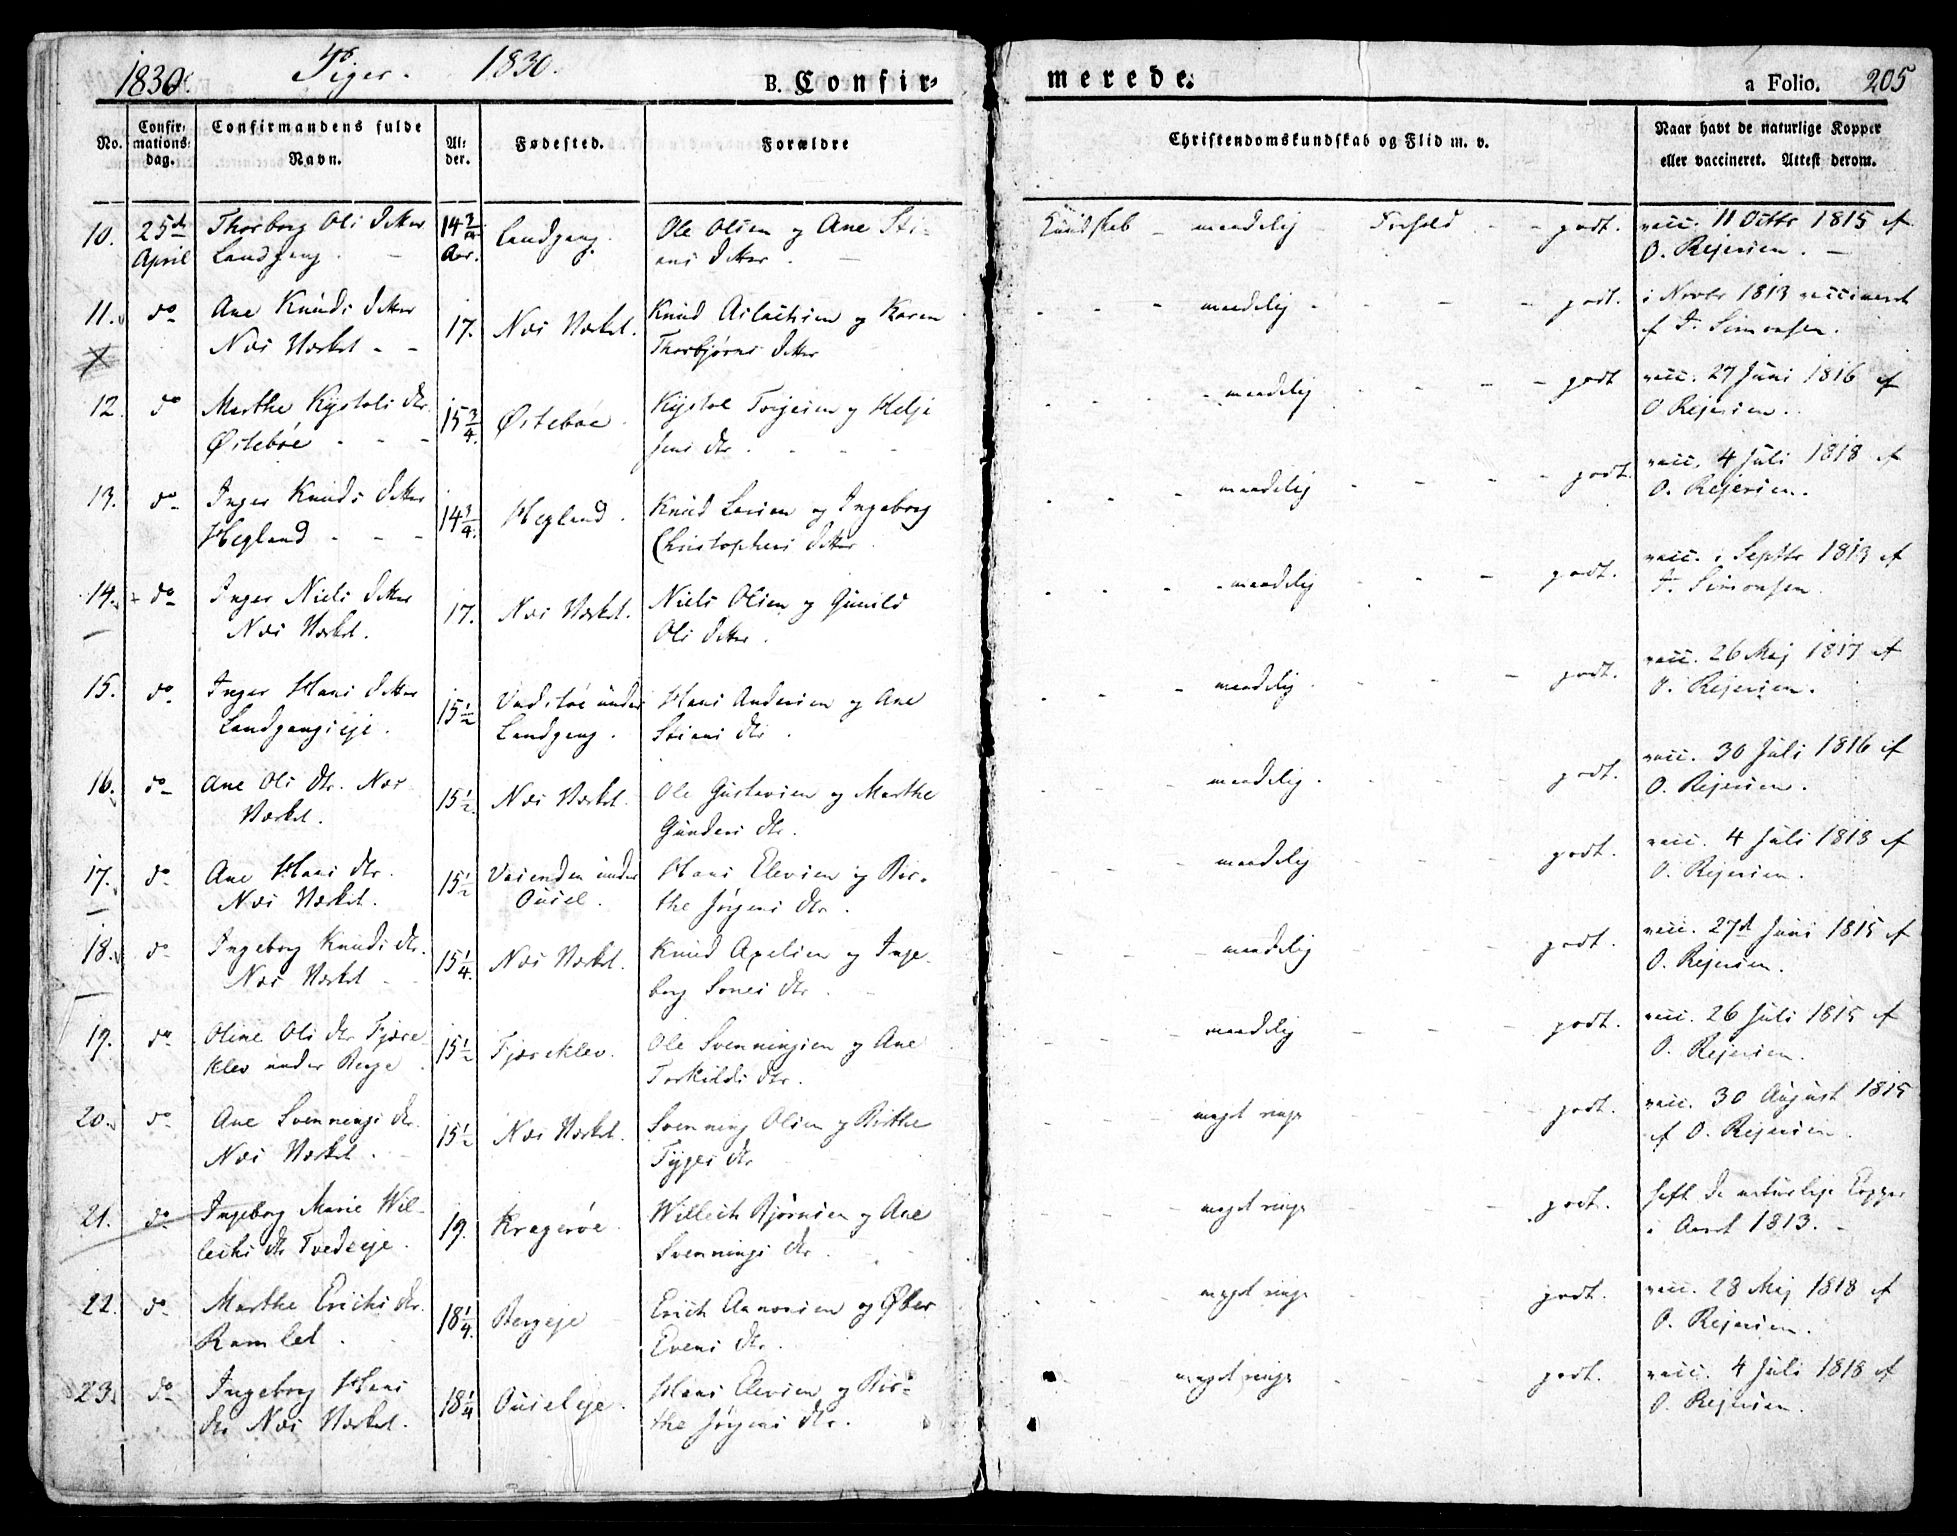 1830. Piger. 1830. B. Confir-merede. a Folio. 205
No. Confir-mations-dag. Confirmandens fulde Navn. Al-der. Fødested. Forældre Christendomskundskab og Flid m. v. Naar havt de naturlige Kopper eller vaccineret. Attest derom.
10. 25de April Thorborg Ols Detter Landgang. 14 Aar. Landgang. Ole Olsen og Ane Sti-ans Detter. Kundskab - maadelig - Forhold - - godt. vacc. 11 Octbr 1815 af O. Rejersen.
11. do Ane Knuds Detter Næs Værket 17. Næs Værket. Knud Aslachsen og Karen Thorbjørns Detter maadelig godt. i Novbr 1813 vaccineret af F. Simonsen.
12. do Marthe Kystols Dtr. Østebøe 15 3/4. Østebøe. Kystol Torjesen og Helje Jens Dtr. maadelig godt vacc. 27 Juni 1816 af O Rejersen.
13. do Inger Knuds Detter Hegland 14 3/4. Hegland. Knud Larsen og Ingeborg Christophers Detter. maadelig godt. vacc. 4 Juli 1818 af O. Rejersen.
14. do Inger Niels Detter Næs Værket. 17. Næs Værket. Niels Olsen og Gunild Ols Detter. maadelig godt. vacc. i Septbr 1813 af F. Simonsen.
15. do Inger Hans Detter Landgangseje. 15 1/2 under Landgang. Hans Andersen og Ane Stians Dtr. maadelig godt. vacc. 26 Maj 1817 af O. Rejersen.
16. do Ane Ols Dtr. Næs Værket. 15 1/2. Næs Værket. Ole Gustavsen og Marthe Gunders Dtr. maadelig. godt. vacc. 30 Juli 1816 af O. Rejersen.
17. do Ane Hans Dtr. Næs Værket. 15 1/2 under Ousel. Hans Elevsen og Bir-the Jørgens Dtr. maadelig godt. vacc. 4 Juli 1818 af O. Rejersen.
18. do Ingeborg Knuds Dtr. Næs Værket 15 1/4. Næs Værket. Knud Apelsen og Inge-borg Dtr. maadelig godt. vacc. 27de Juni 1815 af O. Rejersen.
19. do Oline Ols Dtr Fjære-klev under Berge 15 1/2 Fjæreklev. Ole Svenningsen og Ane Torkilds Dtr. maadelig godt. vacc. 26 Juli 1815 af O. Rejersen.
20. do Ane Svennings Dtr. Næs Værket. 15 1/2 Næs Værket. Svenning Olsen og Birthe Tyges Dtr meget ringe godt. vacc. 30 August 1815 af O. Rejersen.
21. do Ingeborg Marie Wil-lechs Dtr Tvedeeje. 19. Kragerøe. Willech Bjørnsen og Ane Svennings Dtr. meget ringe godt. haft de naturlige Kopper i Aaret 1813.
22. do Marthe Erichs Dtr. Ramlet. 18 1/4. Bergeje Erich Aanonsen og Evens Dtr. meget ringe godt. vacc. 28 Maj 1818 af O. Rejersen.
23. do Ingeborg Hans Dtr Næs Værket. 18 1/4 Ouseleje. Hans Elevsen og Bir-the Jørgens Dtr. meget ringe godt. vacc. 4 Juli 1818 af O. Rejersen.